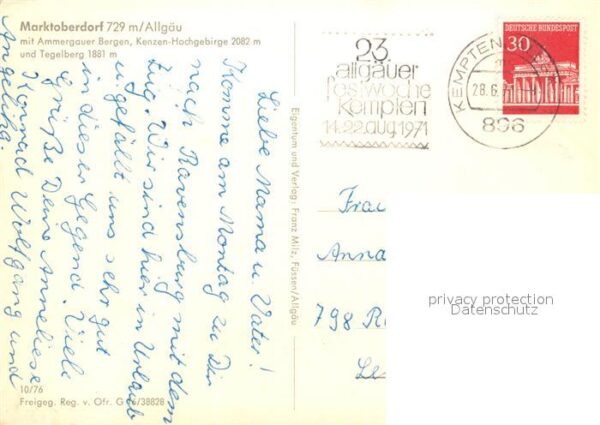 Marktoberdorf 729 m/Allgäu
mit Ammergauer Bergen, Kenzen-Hochgebirge 2082 m
und Tegelberg 1881 m
Liebe Mama u. Vater!
Komme am Montag zu Dir
nach Ravensburg mit dem
Zug. Wir sind hier in Urlaub
u. gefällt uns sehr gut
in dieser Gegend. Viele
Grüße Deine Anneliese
Konrad Wolfgang und
Angelika
10/76
Freigeg. Reg. v. Ofr. G /38828
Eigentum und Verlag: Franz Milz, Füssen/Allgäu
23
allgäuer
festwoche
kempten
14.-22.aug.1971
KEMPTEN
28.6.
896
DEUTSCHE BUNDESPOST
30
Frau
Anna
798 R
privacy protection
Datenschutz